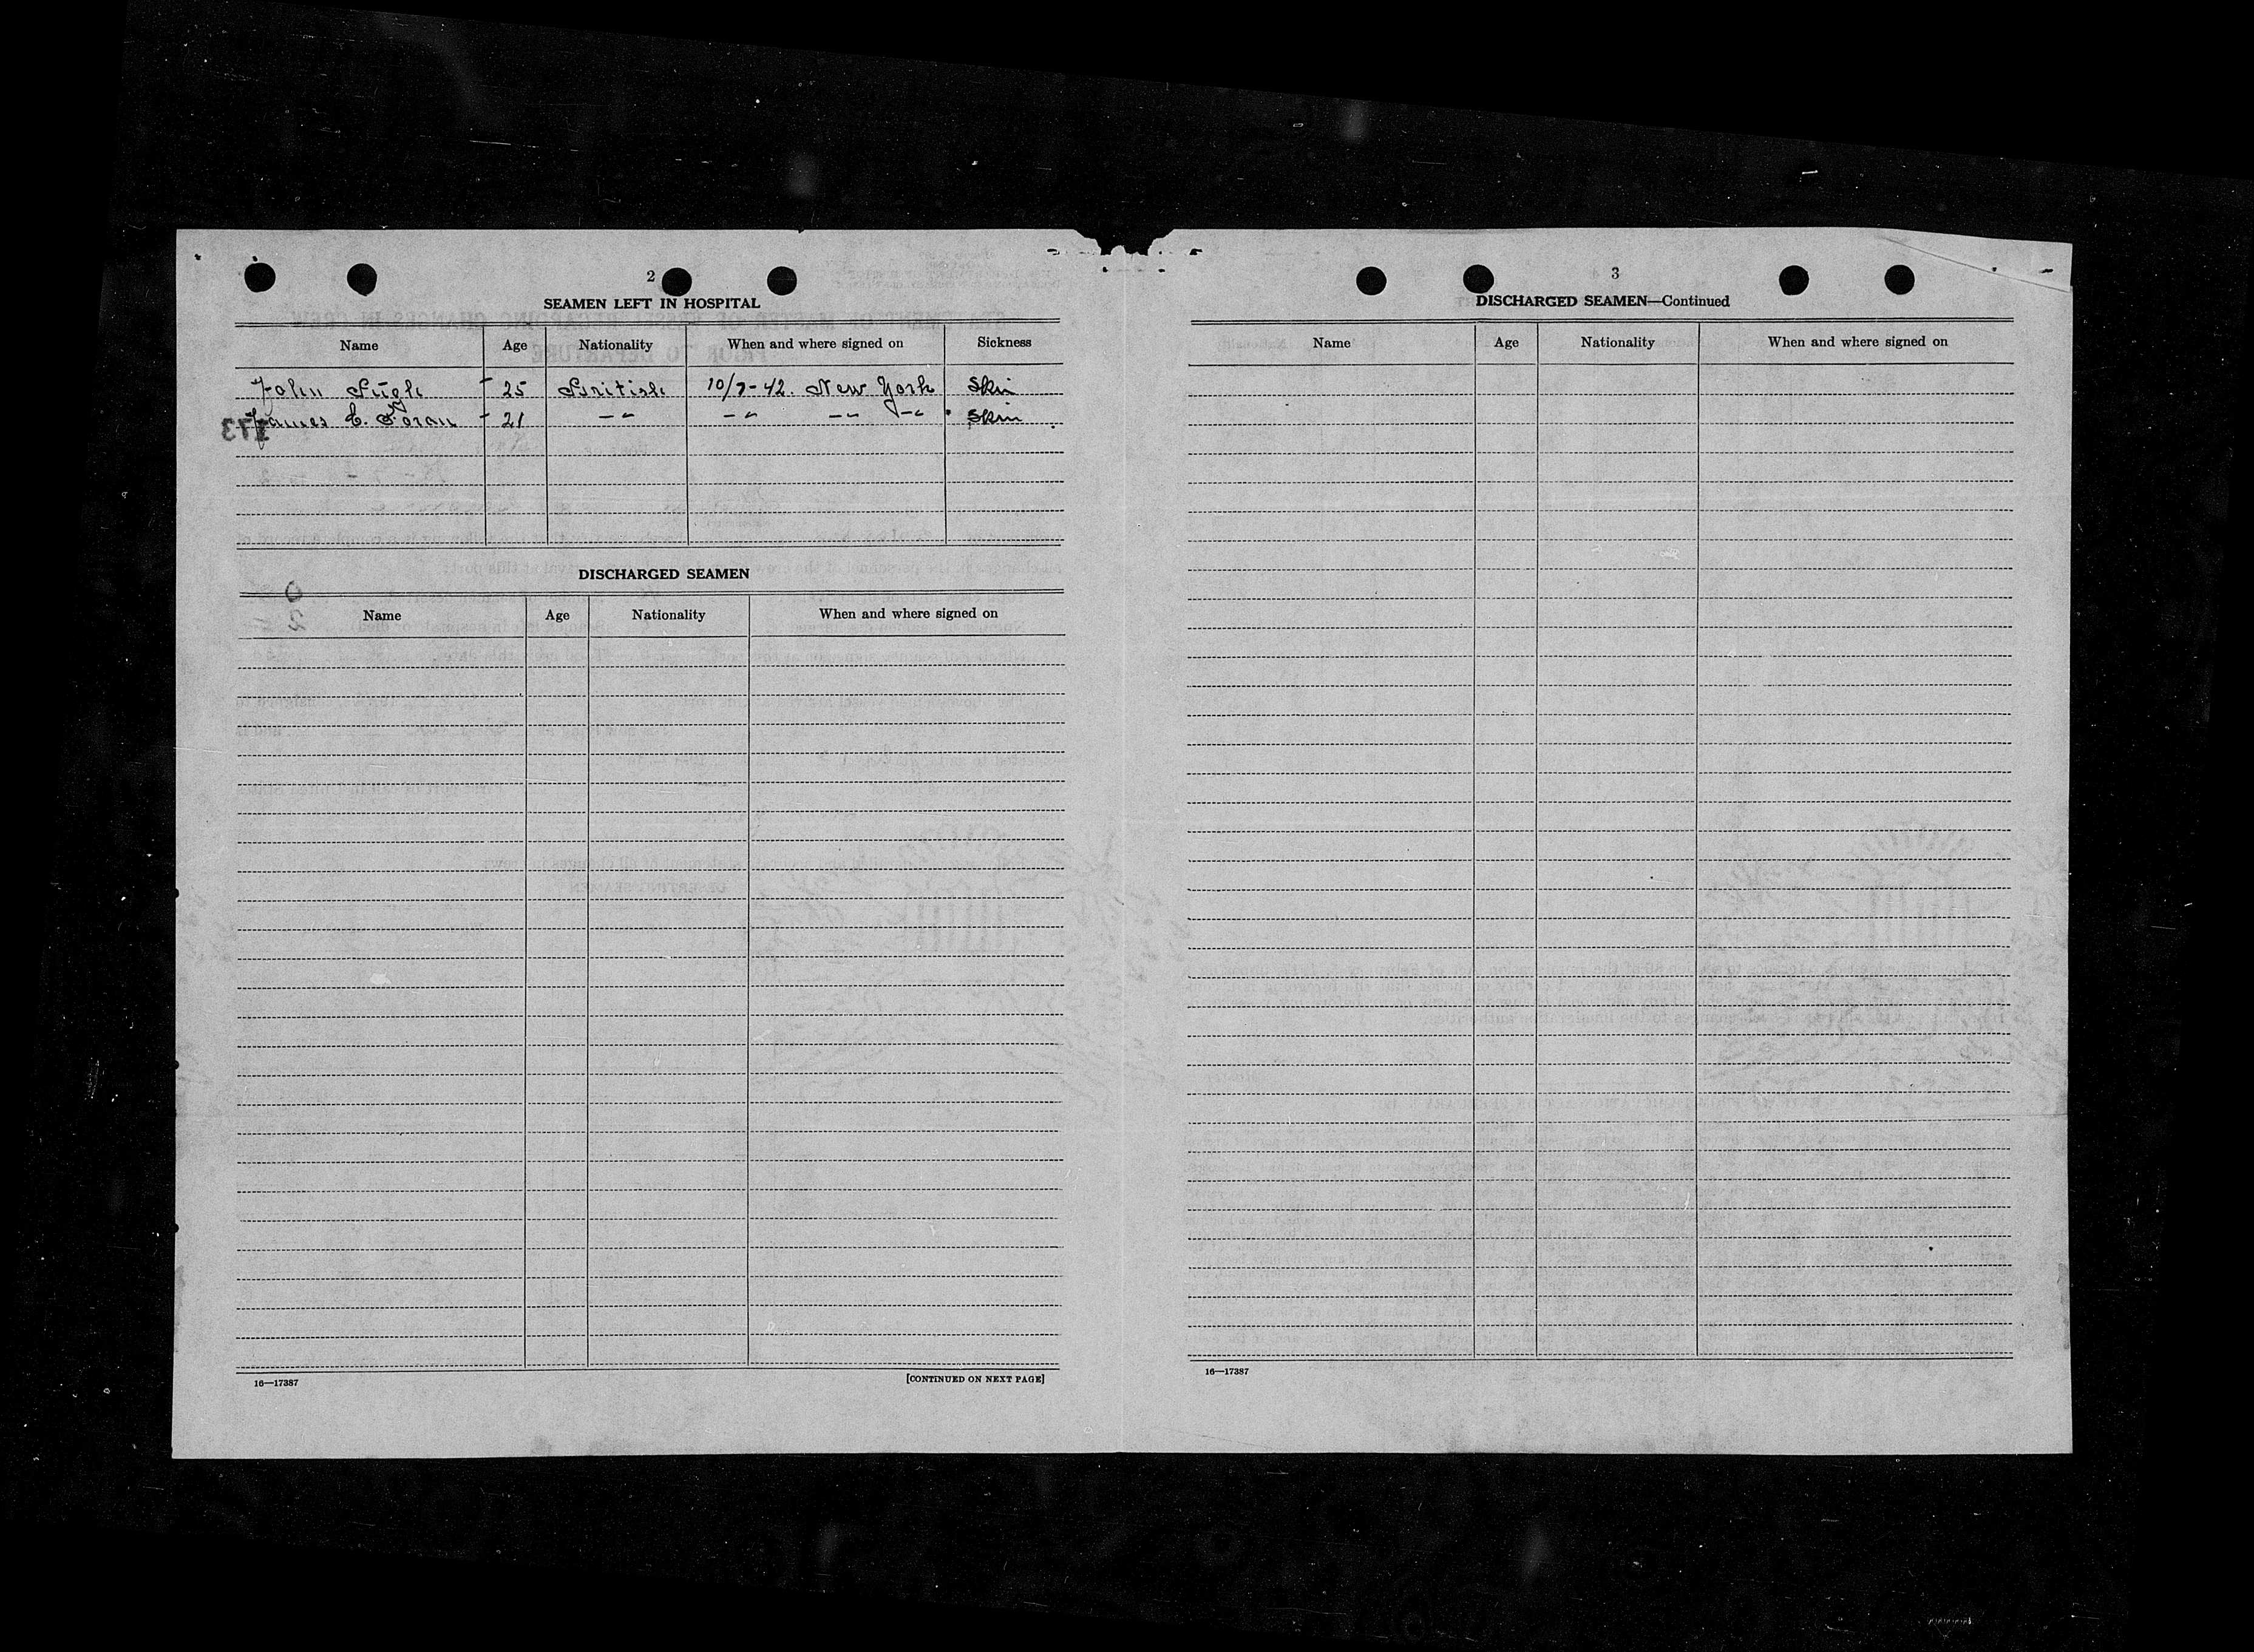 2
SEAMEN LEFT IN HOSPITAL
Name Age Nationality When and where signed on Sickness
John - 25 British 10/7-42. New York Skin
James E. Foran - 21 -"- -"- -"- -"- Skin
DISCHARGED SEAMEN
Name Age Nationality When and where signed on
16—17387 [CONTINUED ON NEXT PAGE]
3
DISCHARGED SEAMEN—Continued
Name Age Nationality When and where signed on
16—17387